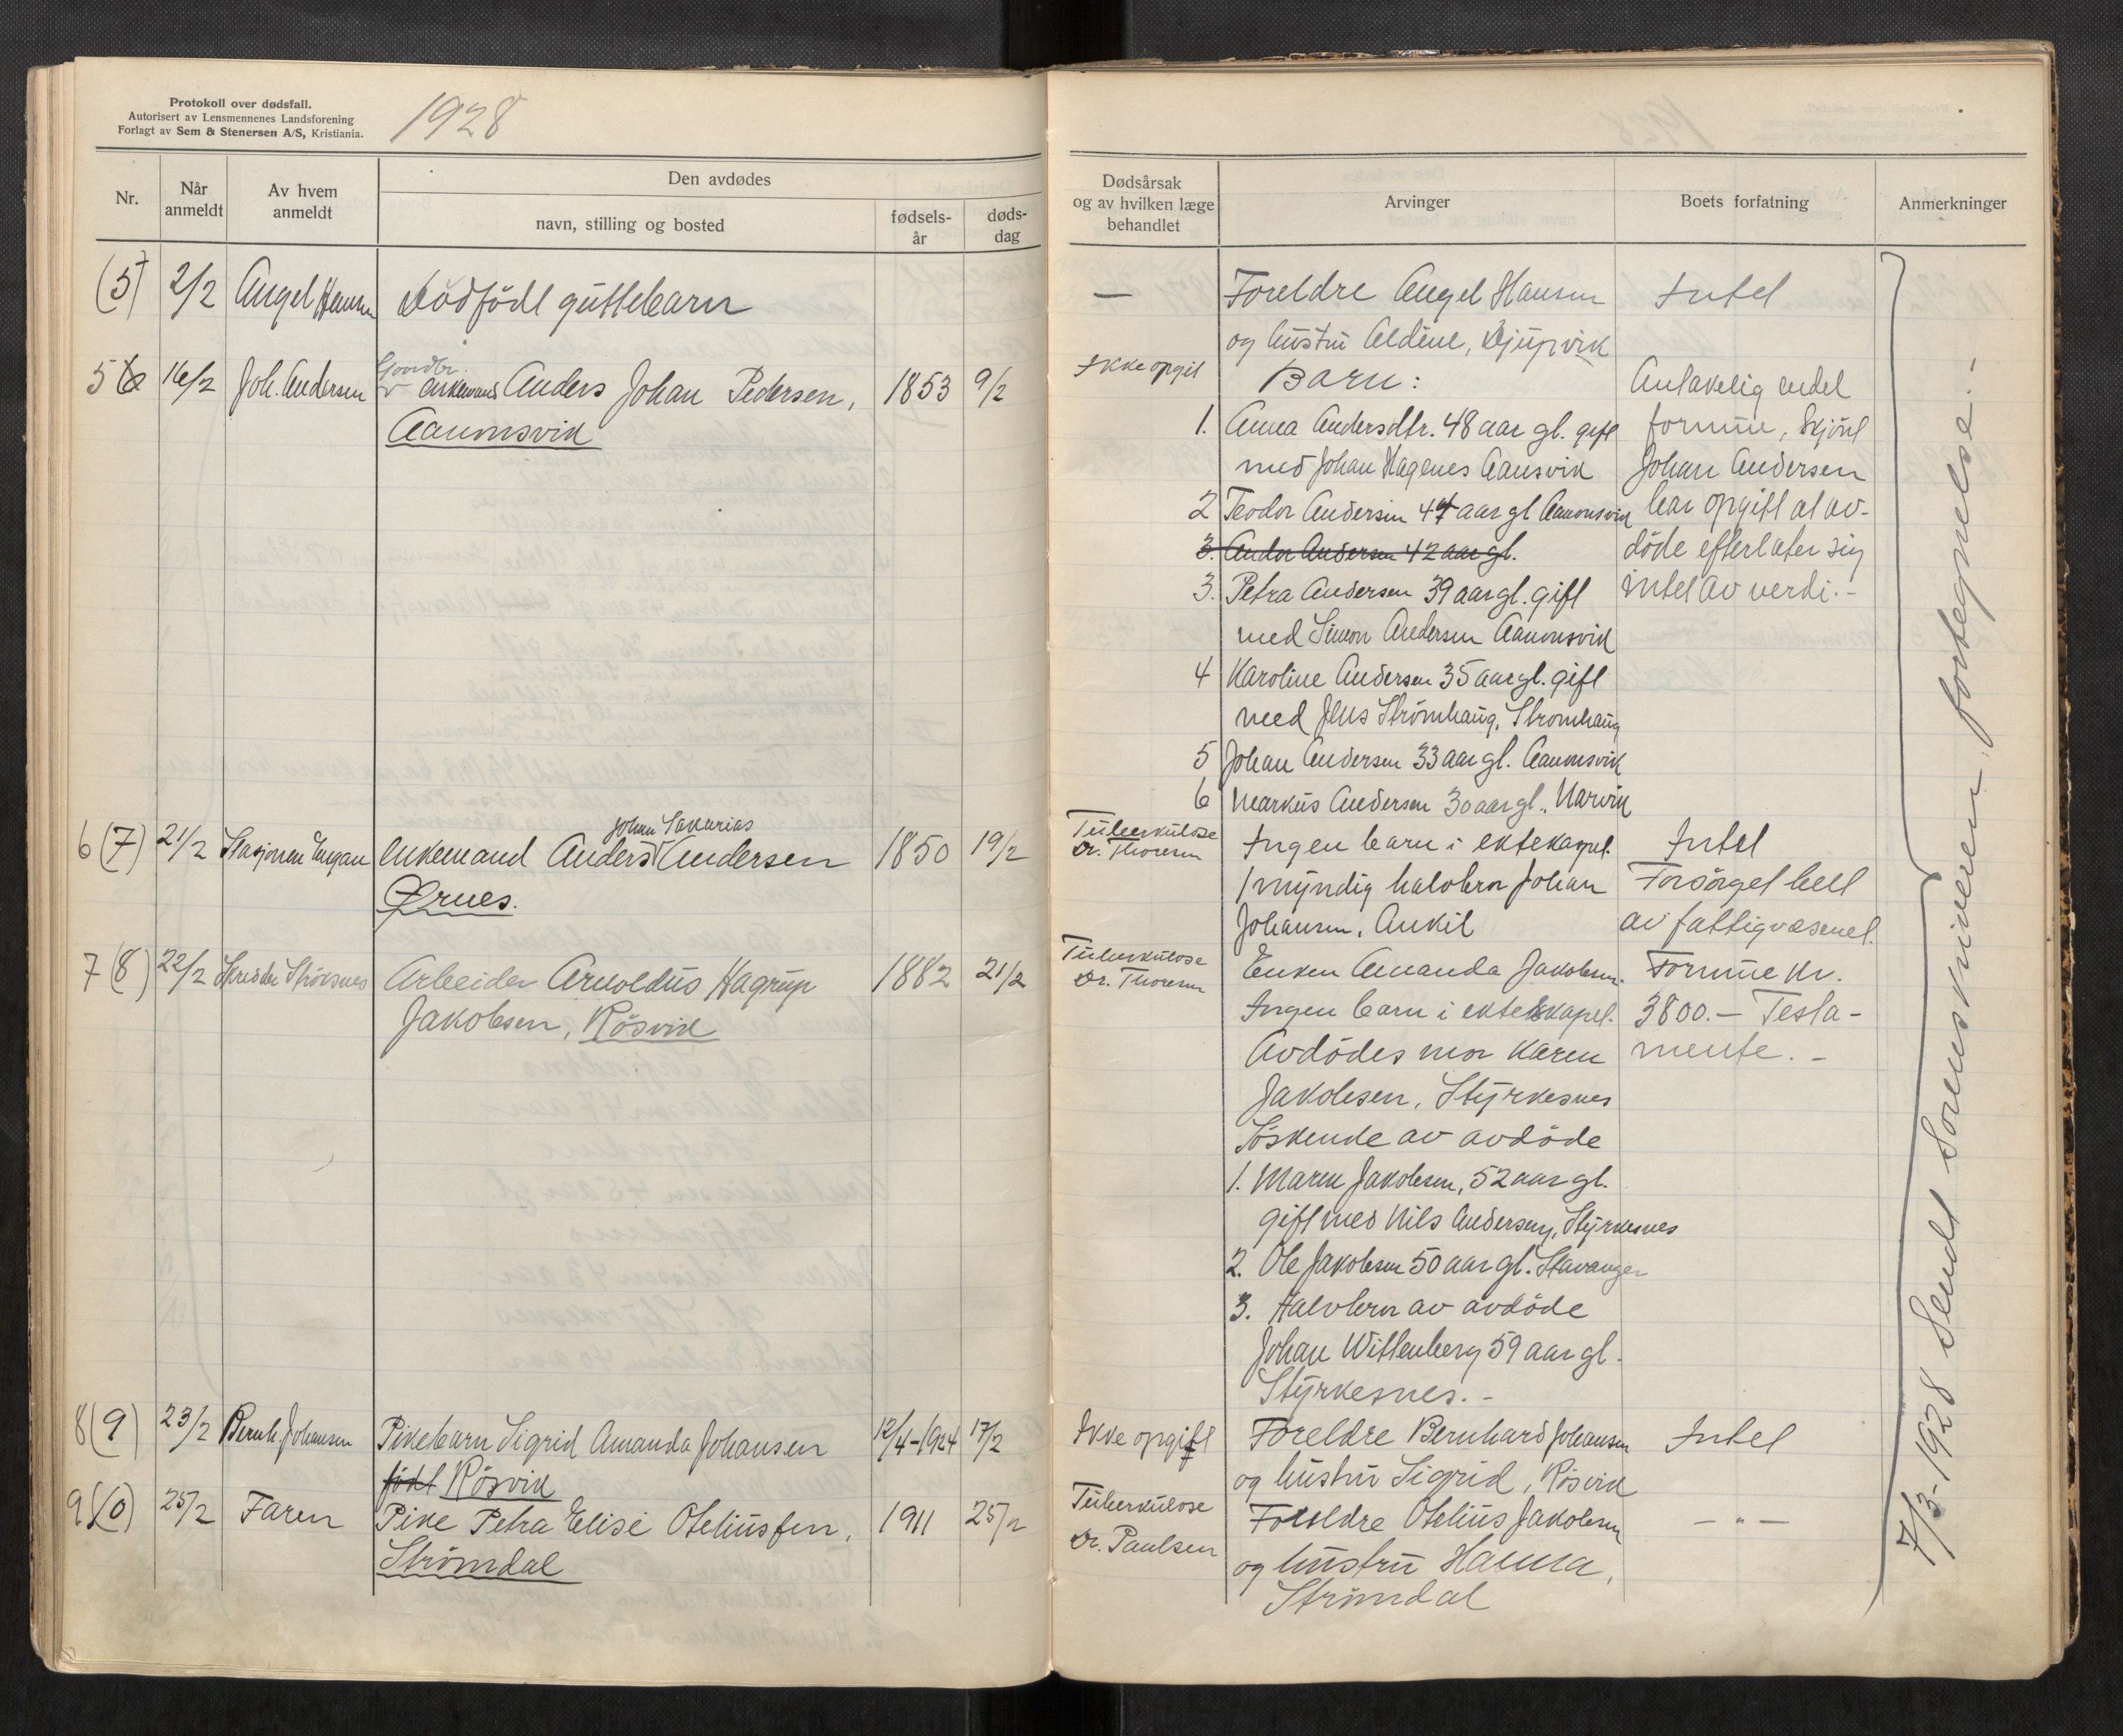 Protokoll over dødsfall.
Autorisert av Lensmennenes Landsforening
Forlagt av Sem & Stenersen A/S, Kristiania.
1928
Nr.
Når anmeldt
Av hvem anmeldt
Den avdødes
navn, stilling og bosted
fødsels-år
døds-dag
(5) 2/2 Angel Hansen Dödfödt guttebarn
5 6 16/2 Joh. Andersen Gaardbr. enkemand Anders Johan Pedersen, 1853 9/2
Aanonsvik
Johan Sakarias
6 (7) 21/2 Stasjonen Engan enkemand Anders Andersen 1850 19/2
Ørnes.
7 (8) 22/2 Skredder Störsnes Arbeider Arnoldus Hagrup 1882 21/2
Jakobsen, Rösvik
8 (9) 23/2 Bernh. Johansen Pikebarn Sigrid Amanda Johansen 12/4-1924 17/2
födt Rösvik
9 (10) 25/2 Faren Pike Petra Elise Oteliussen, 1911 25/2
Strömdal
Dødsårsak
og av hvilken læge
behandlet
Arvinger
Boets forfatning
Anmerkninger
— Foreldre Angel Hansen Intet
og hustru Aldine, Djupvik
Ikke opgit Barn: Antakelig endel
1. Anna Andersdtr. 48 aar gl. gift formue, Skjönt
med Johan Hagenes Aansvik Johan Andersen
2 Teodor Andersen 44 aar gl Aanonsvik har opgitt at av-
3. Andor Andersen 42 aar gl. döde efterlater sig
3. Petra Andersen 39 aar gl. gift intet av verdi. -
med Simon Andersen Aanonsvik
4 Karoline Andersen 35 aar gl. gift
med Jens Strömhaug, Strömhaug
5 Johan Andersen 33 aar gl. Aanonsvik
6 Markus Andersen 30 aar gl. Narvik
Tuberkulose Ingen barn i ektekapet. Intet
Dr. Thoresen
1 myndig halvbror Johan Forsörget helt
Johansen, Ankil av fattigvæsenet.
Tuberkulose Enken Amanda Jakobsen. Formue kr.
Dr. Thoresen
Ingen barn i ekteskapet. 3800.- Testa-
Avdödes mor Karen mente. -
Jakobsen, Styrkesnes
Söskende av avdöde
1. Maren Jakobsen, 52 aar gl.
gift med Nils Andersen, Styrkesnes
2. Ole Jakobsen 50 aar gl. Stavanger
3. Halvbror av avdöde
Johan Wittenberg 59 aar gl.
Styrkesnes. -
Ikke opgitt Foreldre Bernhard Johansen Intet
og hustru Sigrid, Rösvik
Tuberkulose
Foreldre Otelius Jakobsen — " —
Dr. Paulsen og hustru Hanna,
Strömdal
7/3-1928 Sendt Sorenskriveren fortegnelse. -